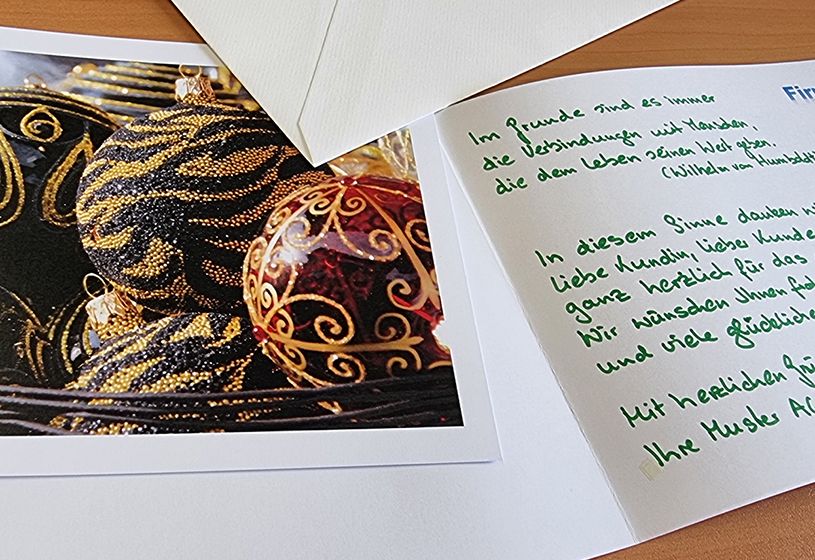 Firm
Im Grunde sind es immer
die Verbindungen mit Menschen,
die dem Leben seinen Wert geben.
(Wilhelm von Humboldt
In diesem Sinne danken wi
liebe Kundin, lieber Kunde
ganz herzlich für das
Wir wünschen Ihnen
und viele glückliche
Mit herzlichen Grü
Ihre Muster AG